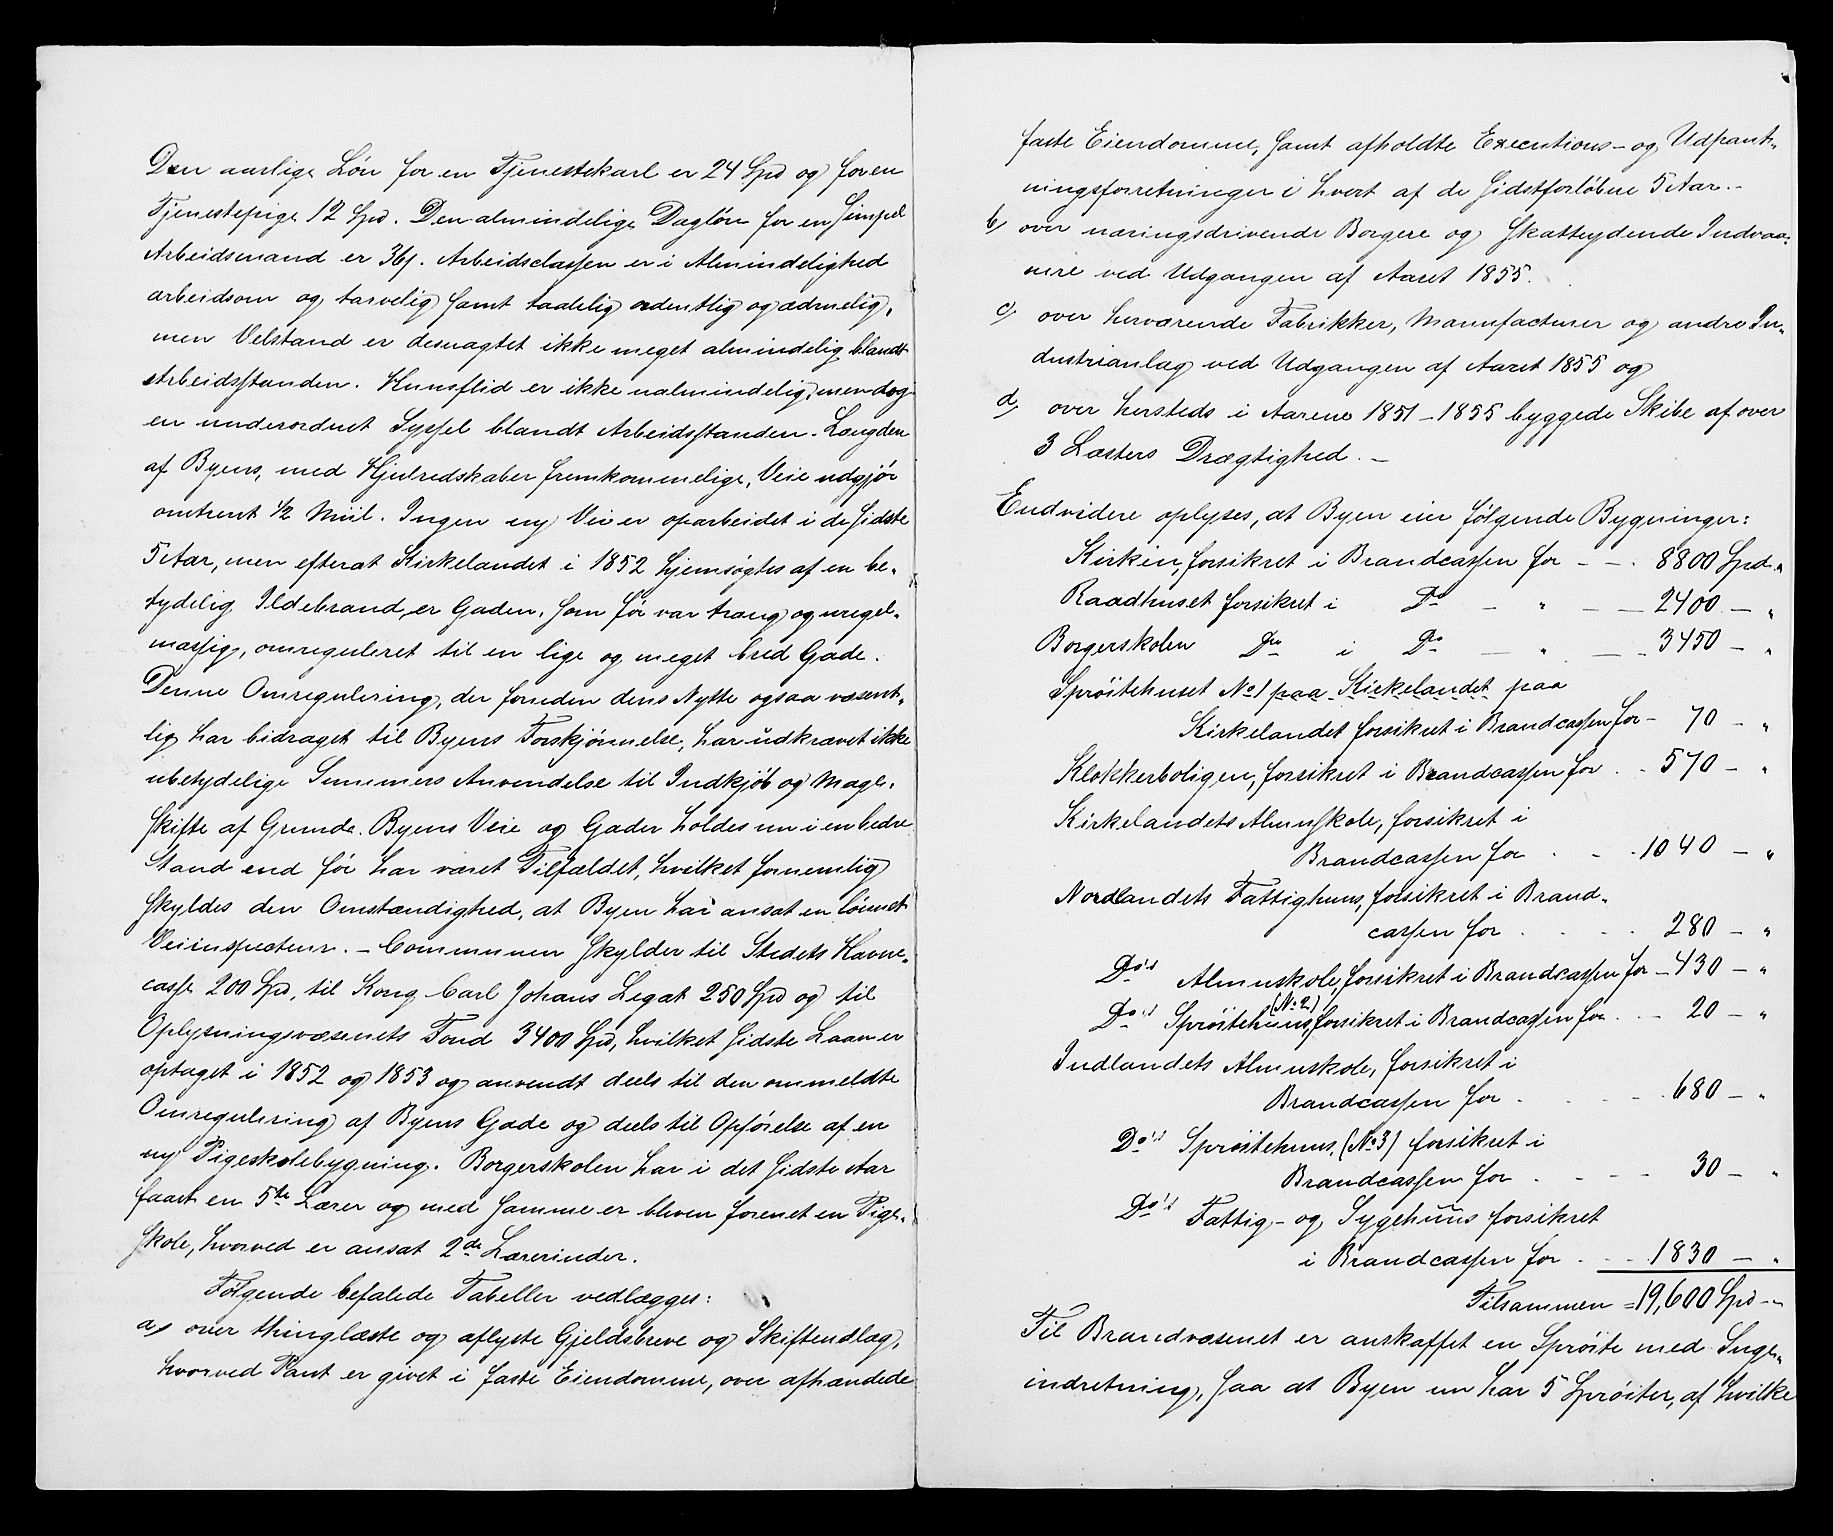 Den aarlige Løn for en Tjenestekarl er 24 Spd og for en
Tjenestepige 12 Spd. Den almindelige Dagløn for en simpel
Arbeidsmand er 36 ſ. Arbeidsclassen er i Almindelighed
arbeidsom og tarvelig samt taalelig ordentlig og ædruelig,
men Velstand er desuagtet ikke meget almindelig blandt
Arbeidsstanden. Huusflid er ikke ualmindelig, men dog
en underordnet Syssel blandt Arbeidsstanden. Længden
af Byens, med Hjulredskaber fremkommelige, Veie udgjør
omtrent 1/2 Miil. Ingen ny Vei er oparbeidet i de sidste
5 Aar, men efterat Kirkelandet i 1852 hjemsøgtes af en be-
tydelig Ildebrand, er Gaden, som før var trang og uregel-
mæssig, omreguleret til en lige og meget bred Gade.
Denne Omregulering, der foruden dens Nytte ogsaa væsent-
lig har bidraget til Byens Forskjønnelse, har udkrævet ikke
ubetydelige Summers Anvendelse til Indkjøb og Mage-
skifte af Grunde. Byens Veie og Gader holdes nu i en bedre
Stand end før har været Tilfældet, hvilket fornemlig
skyldes den Omstændighed, at Byen har ansat en lønnet
Veiinspecteur. – Communen skylder til Stedets Havne-
casse 200 Spd, til Kong Carl Johans Legat 250 Spd og til
Oplysningsvæsenets Fond 3400 Spd, hvilket sidste Laan er
optaget i 1852 og 1853 og anvendt deels til den ommeldte
Omregulering af Byens Gade og deels til Opførelse af en
ny Pigeskolebygning. Borgerskolen har i det sidste Aar
faaet en 5te Lærer og med samme er bleven forenet en Pige-
skole, hvorved er ansat 2de Lærerinder.
Følgende befalede Tabeller vedlægges:
a) over thinglæste og aflyste Gjeldsbreve og Skifteudlæg,
hvorved Pant er givet i faste Eiendomme, over afhændede
faste Eiendomme, samt afholdte Executions- og Udpant-
ningsforretninger i hvert af de sidstforløbne 5 Aar. -
b) over næringsdrivende Borgere og skatteydende Indvaa-
nere ved Udgangen af Aaret 1855.
c) over herværende Fabrikker, Manufacturer og andre In-
dustrianlæg ved Udgangen af Aaret 1855 og
d) over hersteds i Aarene 1851 – 1855 byggede Skibe af over
3 Læsters Drægtighed. –
Endvidere oplyses, at Byen eier følgende Bygninger:
Kirken, forsikret i Brandcassen for – – . 8800 Spd "
Raadhuset forsikret i Do – " – – 2400 – "
Borgerskolen Do i Do – " – – 3450 – "
Sprøitehuset No 1 paa Kirkelandet paa
Kirkelandet forsikret i Brandcassen for – 70 – "
Klokkerboligen, forsikret i Brandcassen for . . 570 – "
Kirkelandets Almuskole, forsikret i
Brandcassen for . . . 1040 – "
Nordlandets Fattighuus, forsikret i Brand-
cassen for . . . . 280 – "
Do's Almuskole, forsikret i Brandcassen for – 430 – "
Do's Sprøitehuus (No 2), forsikret i Brandcassen for . . – 20 – "
Indlandets Almuskole, forsikret i
Brandcassen for . . . . 680 – "
Do's Sprøitehuus, (No 3) forsikret i
Brandcassen for . . – – 30 – "
Do's Fattig- og Sygehuus forsikret
i Brandcassen for . . – . 1830 – "
Tilsammen = 19,600 Spd – "
Til Brandvæsenet er anskaffet en Sprøite med Suge-
indretning, saa at Byen nu har 5 Sprøiter, af hvilke